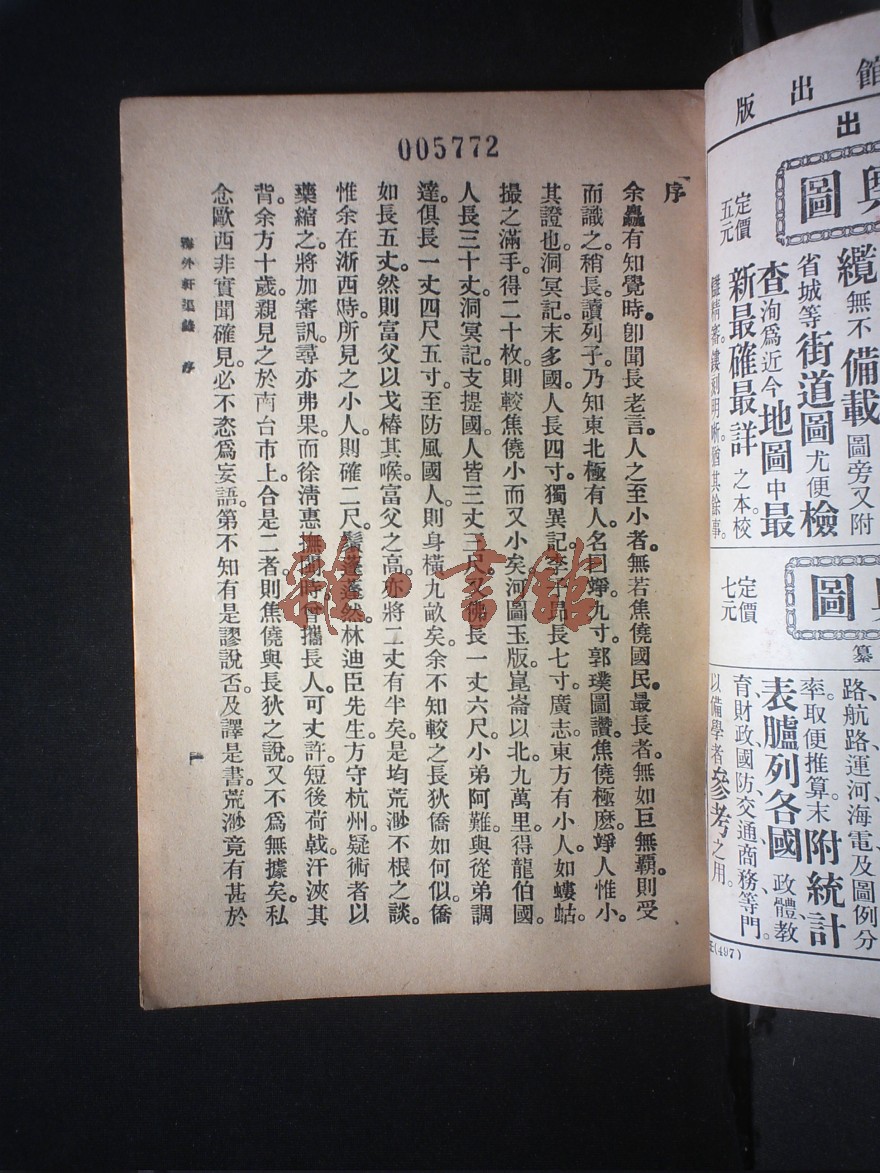 005772
序
余蠢有知覺時。卽聞長老言。人之至小者。無若焦僥國民。最長者。無如巨無霸。則受
而識之。稍長。讀列子。乃知東北極有人。名曰竫。九寸。郭璞圖讚。焦僥極麽。竫人惟小。
其證也。洞冥記。末多國。人長四寸。獨異記。李子昂。長七寸。廣志。東方有小人。如螻蛄。
撮之滿手。得二十枚。則較焦僥小而又小矣。河圖玉版。崑崙以北。九萬里。得龍伯國。
人長三十丈。洞冥記。支提國。人皆三丈三尺。又佛長一丈六尺。小弟阿難。與從弟調
達。俱長一丈四尺五寸。至防風國人。則身橫九畝矣。余不知較之長狄僑如何似。僑
如長五丈。然則富父以戈樁其喉。富父之高。亦將二丈有半矣。是均荒渺不根之談。
惟余在浙西時。所見之小人。則確二尺。鬚蓬蓬然。林迪臣先生。方守杭州。疑術者以
藥縮之。將加審訊。尋亦弗果。而徐清惠撫閩時。曾攜長人。可丈許。短後荷戟。汗浹其
背。余方十歲。親見之於南台市上。合是二者。則焦僥與長狄之說。又不爲無據矣。私
念歐西非實聞確見。必不恣爲妄語。第不知有是謬說否。及譯是書。荒渺竟有甚於
海外軒渠錄 序
一
雜·書館
館出版
出
輿圖
定價
五元
纜無不備載圖旁又附
省城等街道圖尤便檢
查洵爲近今地圖中最
新最確最詳之本校
鑑精審。鏤刻明晰。猶其餘事。
輿圖
定價
七元
纂
路、航路、運河、海電、及圖例分
率。取便推算。末附統計
表臚列各國政體、教
育、財政、國防、交通、商務、等門。
以備學者參考之用。
(497)